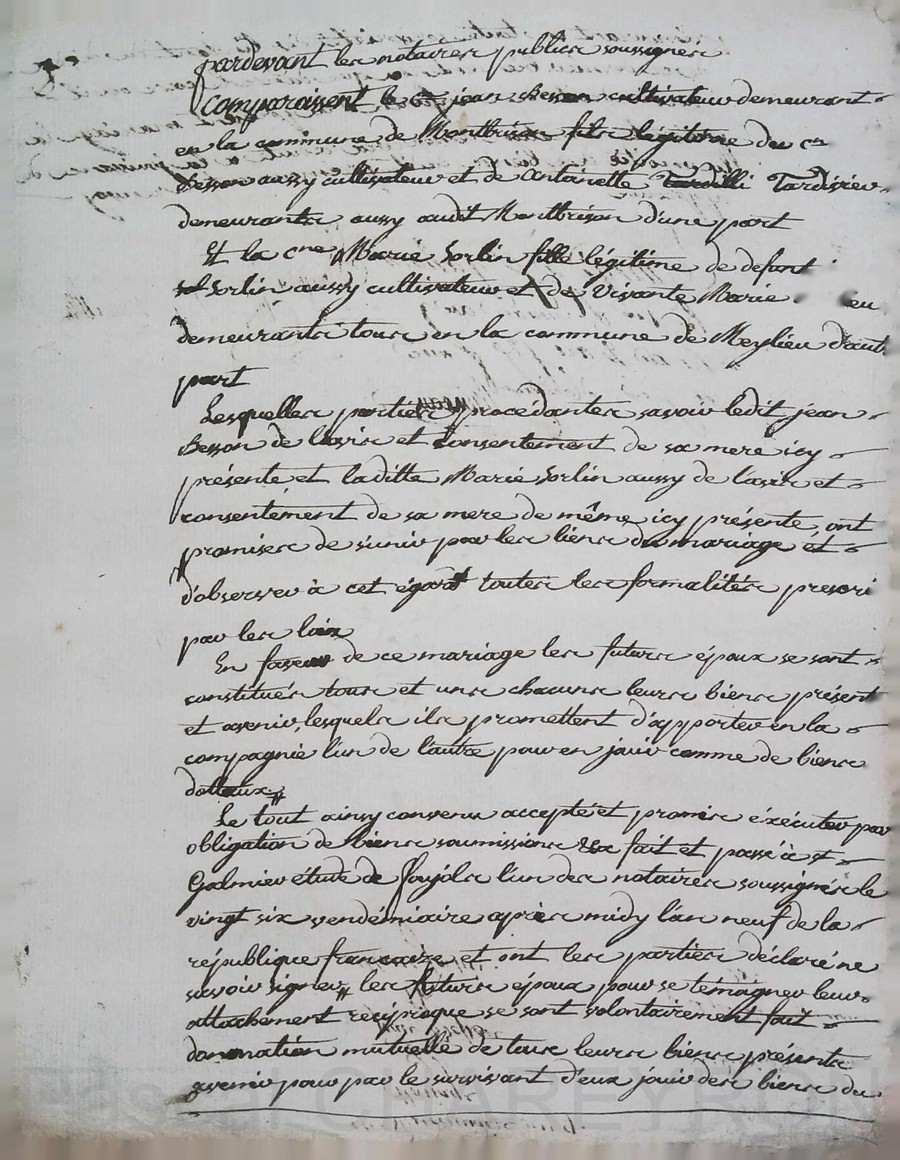 pardevant les notaires publics soussignes
Comparaissent le c.en jean Besson cultivateur demeurant
en la commune de Montbrison fils légitime du c.en
Besson aussy cultivateur et de Antoinette Tardivi
demeurants aussy audit Montbrison d'une part
Et la c.ne Marie Sorlin fille légitime de defunt
Sorlin aussy cultivateur et de vivante Marie eu
demeurants tous en la commune de Meylieu d'aut
part
Lesquelles parties procédantes savoir ledit jean
Besson de l'avis et consentement de sa mere icy
présente et laditte Marie Sorlin aussy de l'avis et
consentement de sa mere de même icy présente, ont
promises de s'unir par les liens du mariage et
d'observer à cet égard toutes les formalités prescri
par les loix
En faveur de ce mariage les futurs époux se sont
constitués tous et uns chacuns leurs biens présent
et avenir, lesquels ils promettent d'apporter en la
compagnie l'un de l'autre pour en jouir comme de biens
dottaux
Le tout ainsy convenu accepté et promis éxécuter par
obligation de biens soumissions &a fait et passé à st
Galmier étude de Soujols l'un des notaires soussignés le
vingt six vendémiaire après midy l'an neuf de la
république francaise et ont les parties déclaré ne
savoir signer les futurs époux pour se témoigner leur
attachement reciproque se sont volontairement fait
donnation mutuelle de tous leurs biens présents
avenir pour par le survivant d'eux jouir des biens du
Pascal CHAREYRON